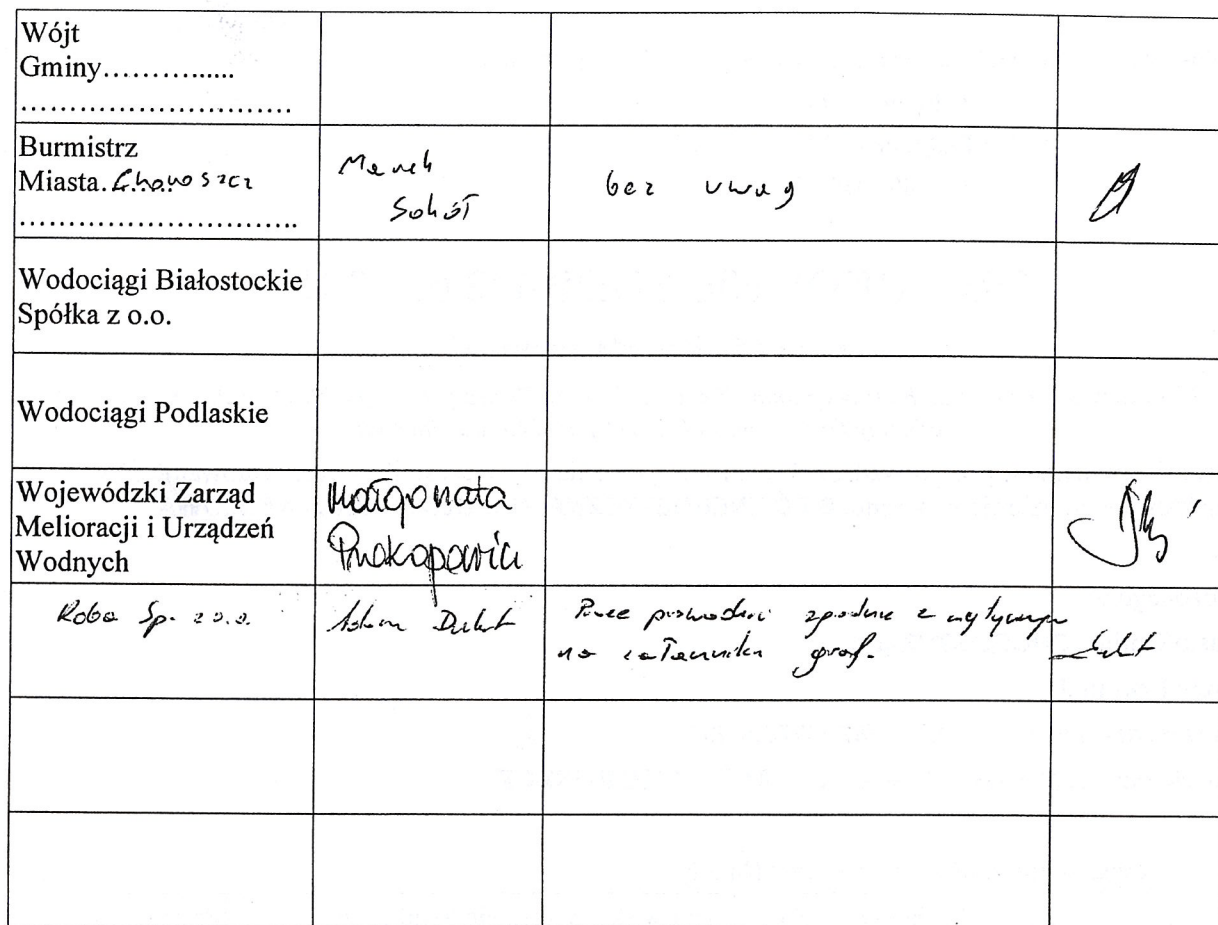 Wójt
Gminy……….....
……………………….
Burmistrz
Miasta. Choroszcz
………………………..
Marek
Sokół
bez uwag
Wodociągi Białostockie
Spółka z o.o.
Wodociągi Podlaskie
Wojewódzki Zarząd
Melioracji i Urządzeń
Wodnych
Małgorzata
Prokopowicz
Sp. z o.o.
Adam
Prace prowadzić zgodnie z wytycznymi
na załączniku graf.